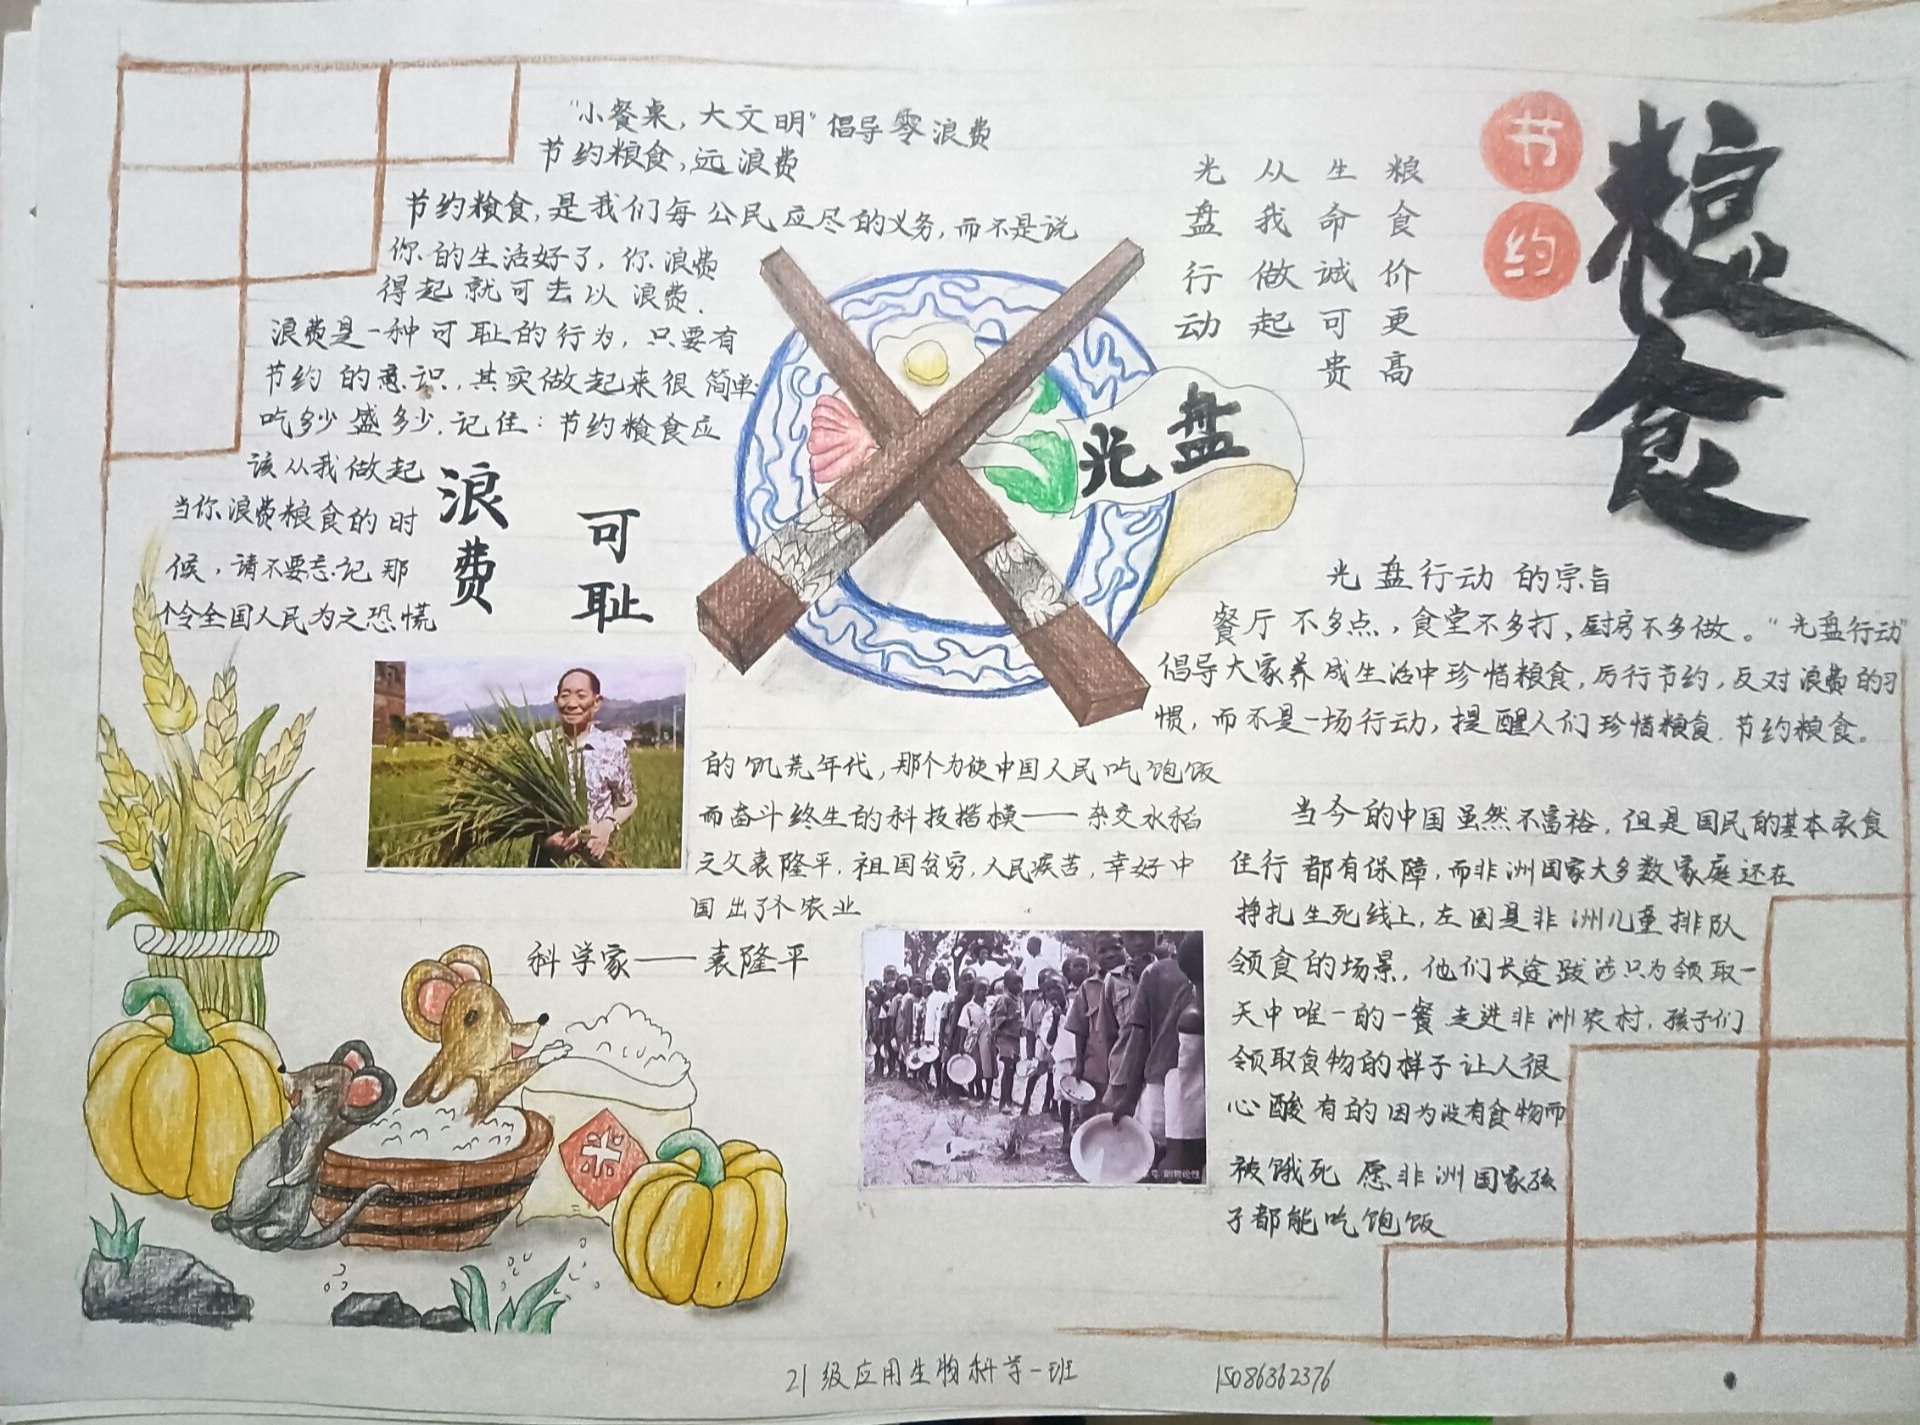 "小餐桌，大文明"倡导零浪费
节约粮食，远浪费
节约粮食，是我们每公民应尽的义务，而不是说
你的生活好了，你浪费
得起就可去以浪费.
浪费是一种可耻的行为，只要有
节约的意识，其实做起来很简单
吃多少盛多少.记住：节约粮食应
该从我做起
当你浪费粮食的时
候，请不要忘记那
个令全国人民为之恐慌
浪费
可耻
的饥荒年代，那个为使中国人民吃饱饭
而奋斗终生的科技楷模——杂交水稻
之父袁隆平，祖国贫穷，人民疾苦，幸好中
国出了个农业
科学家——袁隆平
光盘
米
节约
粮食
粮食价更高
生命诚可贵
从我做起
光盘行动
光盘行动的宗旨
餐厅不多点，食堂不多打、厨房不多做。"光盘行动"
倡导大家养成生活中珍惜粮食，厉行节约，反对浪费的习
惯，而不是一场行动，提醒人们珍惜粮食.节约粮食。
当今的中国虽然不富裕，但是国民的基本衣食
住行都有保障，而非洲国家大多数家庭还在
挣扎生死线上，左图是非洲儿童排队
领食的场景，他们长途跋涉只为领取一
天中唯一的一餐走进非洲农村，孩子们
领取食物的样子让人很
心酸有的因为没有食物而
被饿死 愿非洲国家孩
子都能吃饱饭
21级应用生物科学一班
15086362376